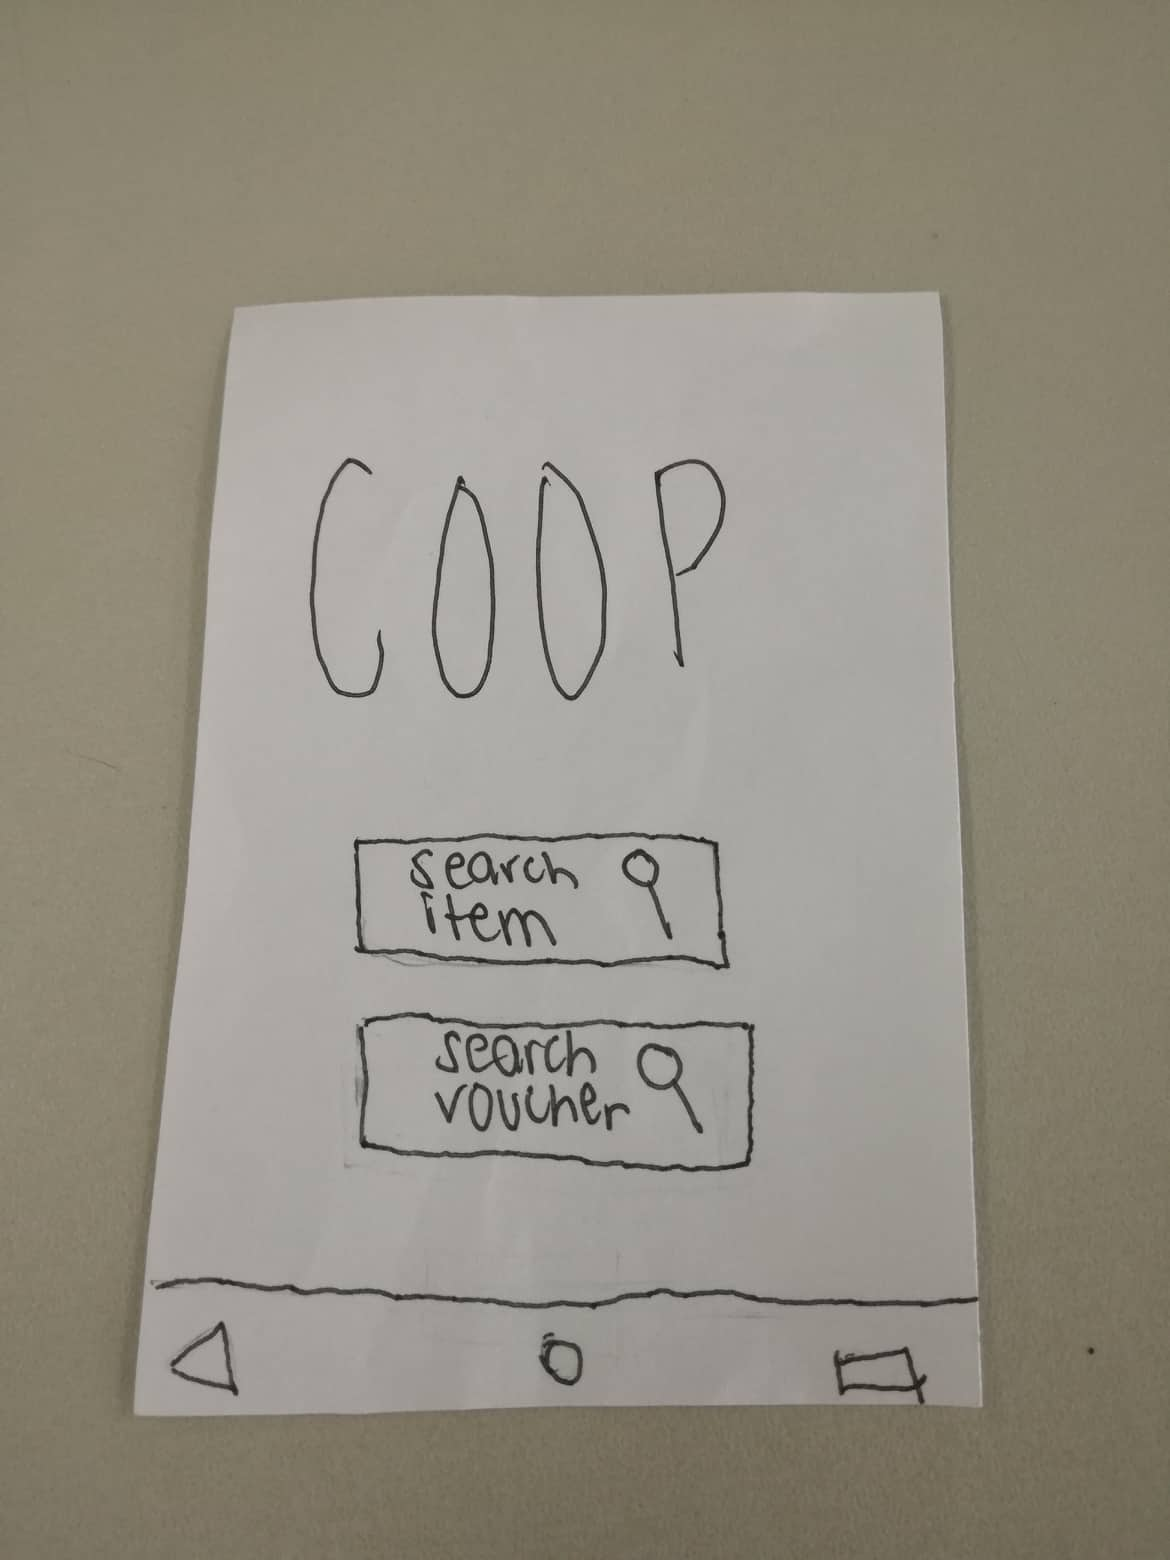 COOP
search
item
search
voucher